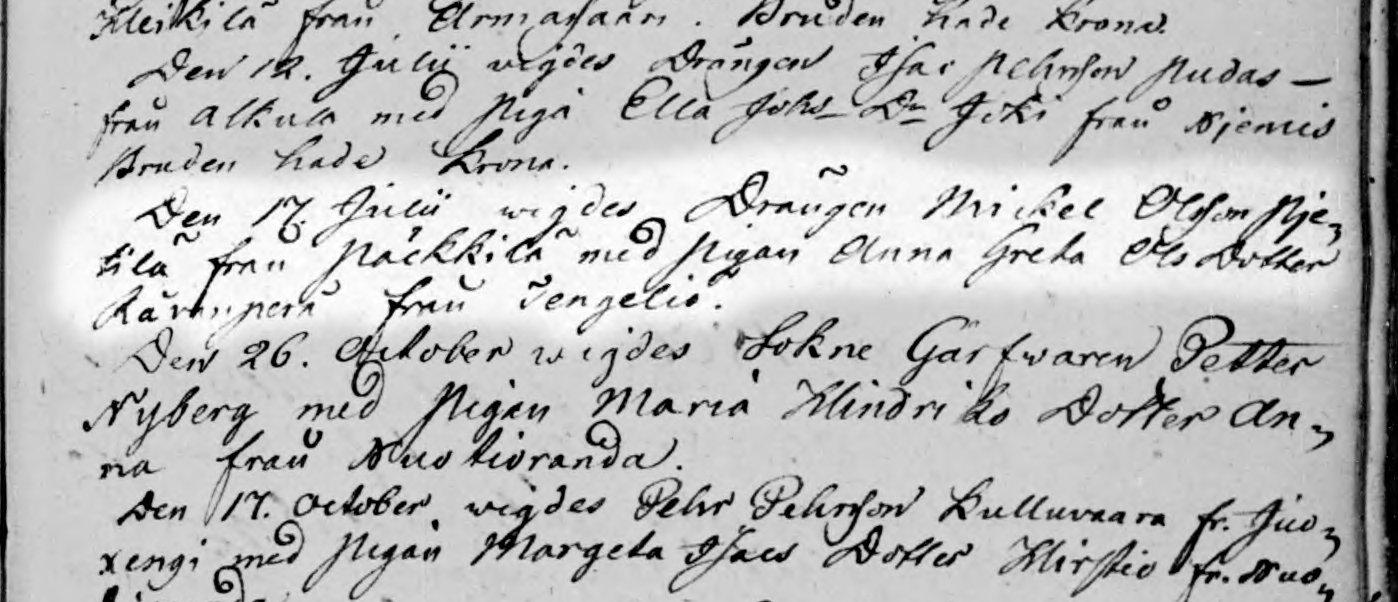 Heikilä från Armasaari. Bruden hade Krona.
Den 12. Julii wigdes Drängen Isac Pehrsson Pudas
från Alkula med Piga Ella Johs Dr Joki från Njemis
Bruden hade Krona.
Den 17. Julii wigdes Drängen Mickel Olsson Pje-
tilä från Päckkilä med Pigan Anna Greta Ols Dotter
från Tengeliö.
Den 26. October wigdes Sokne Garfwaren Petter
Nyberg med Pigan Maria Hindriks Dotter An-
na från Nuotioranda.
Den 17. October wigdes Pehr Pehrsson Kulluvaara fr. Juo-
xengi med Pigan Margeta Isacs Dotter fr. Nuo-